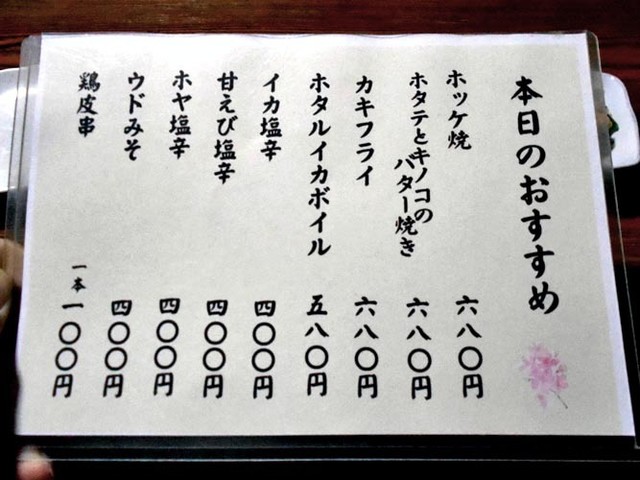 本日のおすすめ
ホッケ焼 六八〇円
ホタテとキノコの
バター焼き 六八〇円
カキフライ 六八〇円
ホタルイカボイル 五八〇円
イカ塩辛 四〇〇円
甘えび塩辛 四〇〇円
ホヤ塩辛 四〇〇円
ウドみそ 四〇〇円
鶏皮串 一本一〇〇円